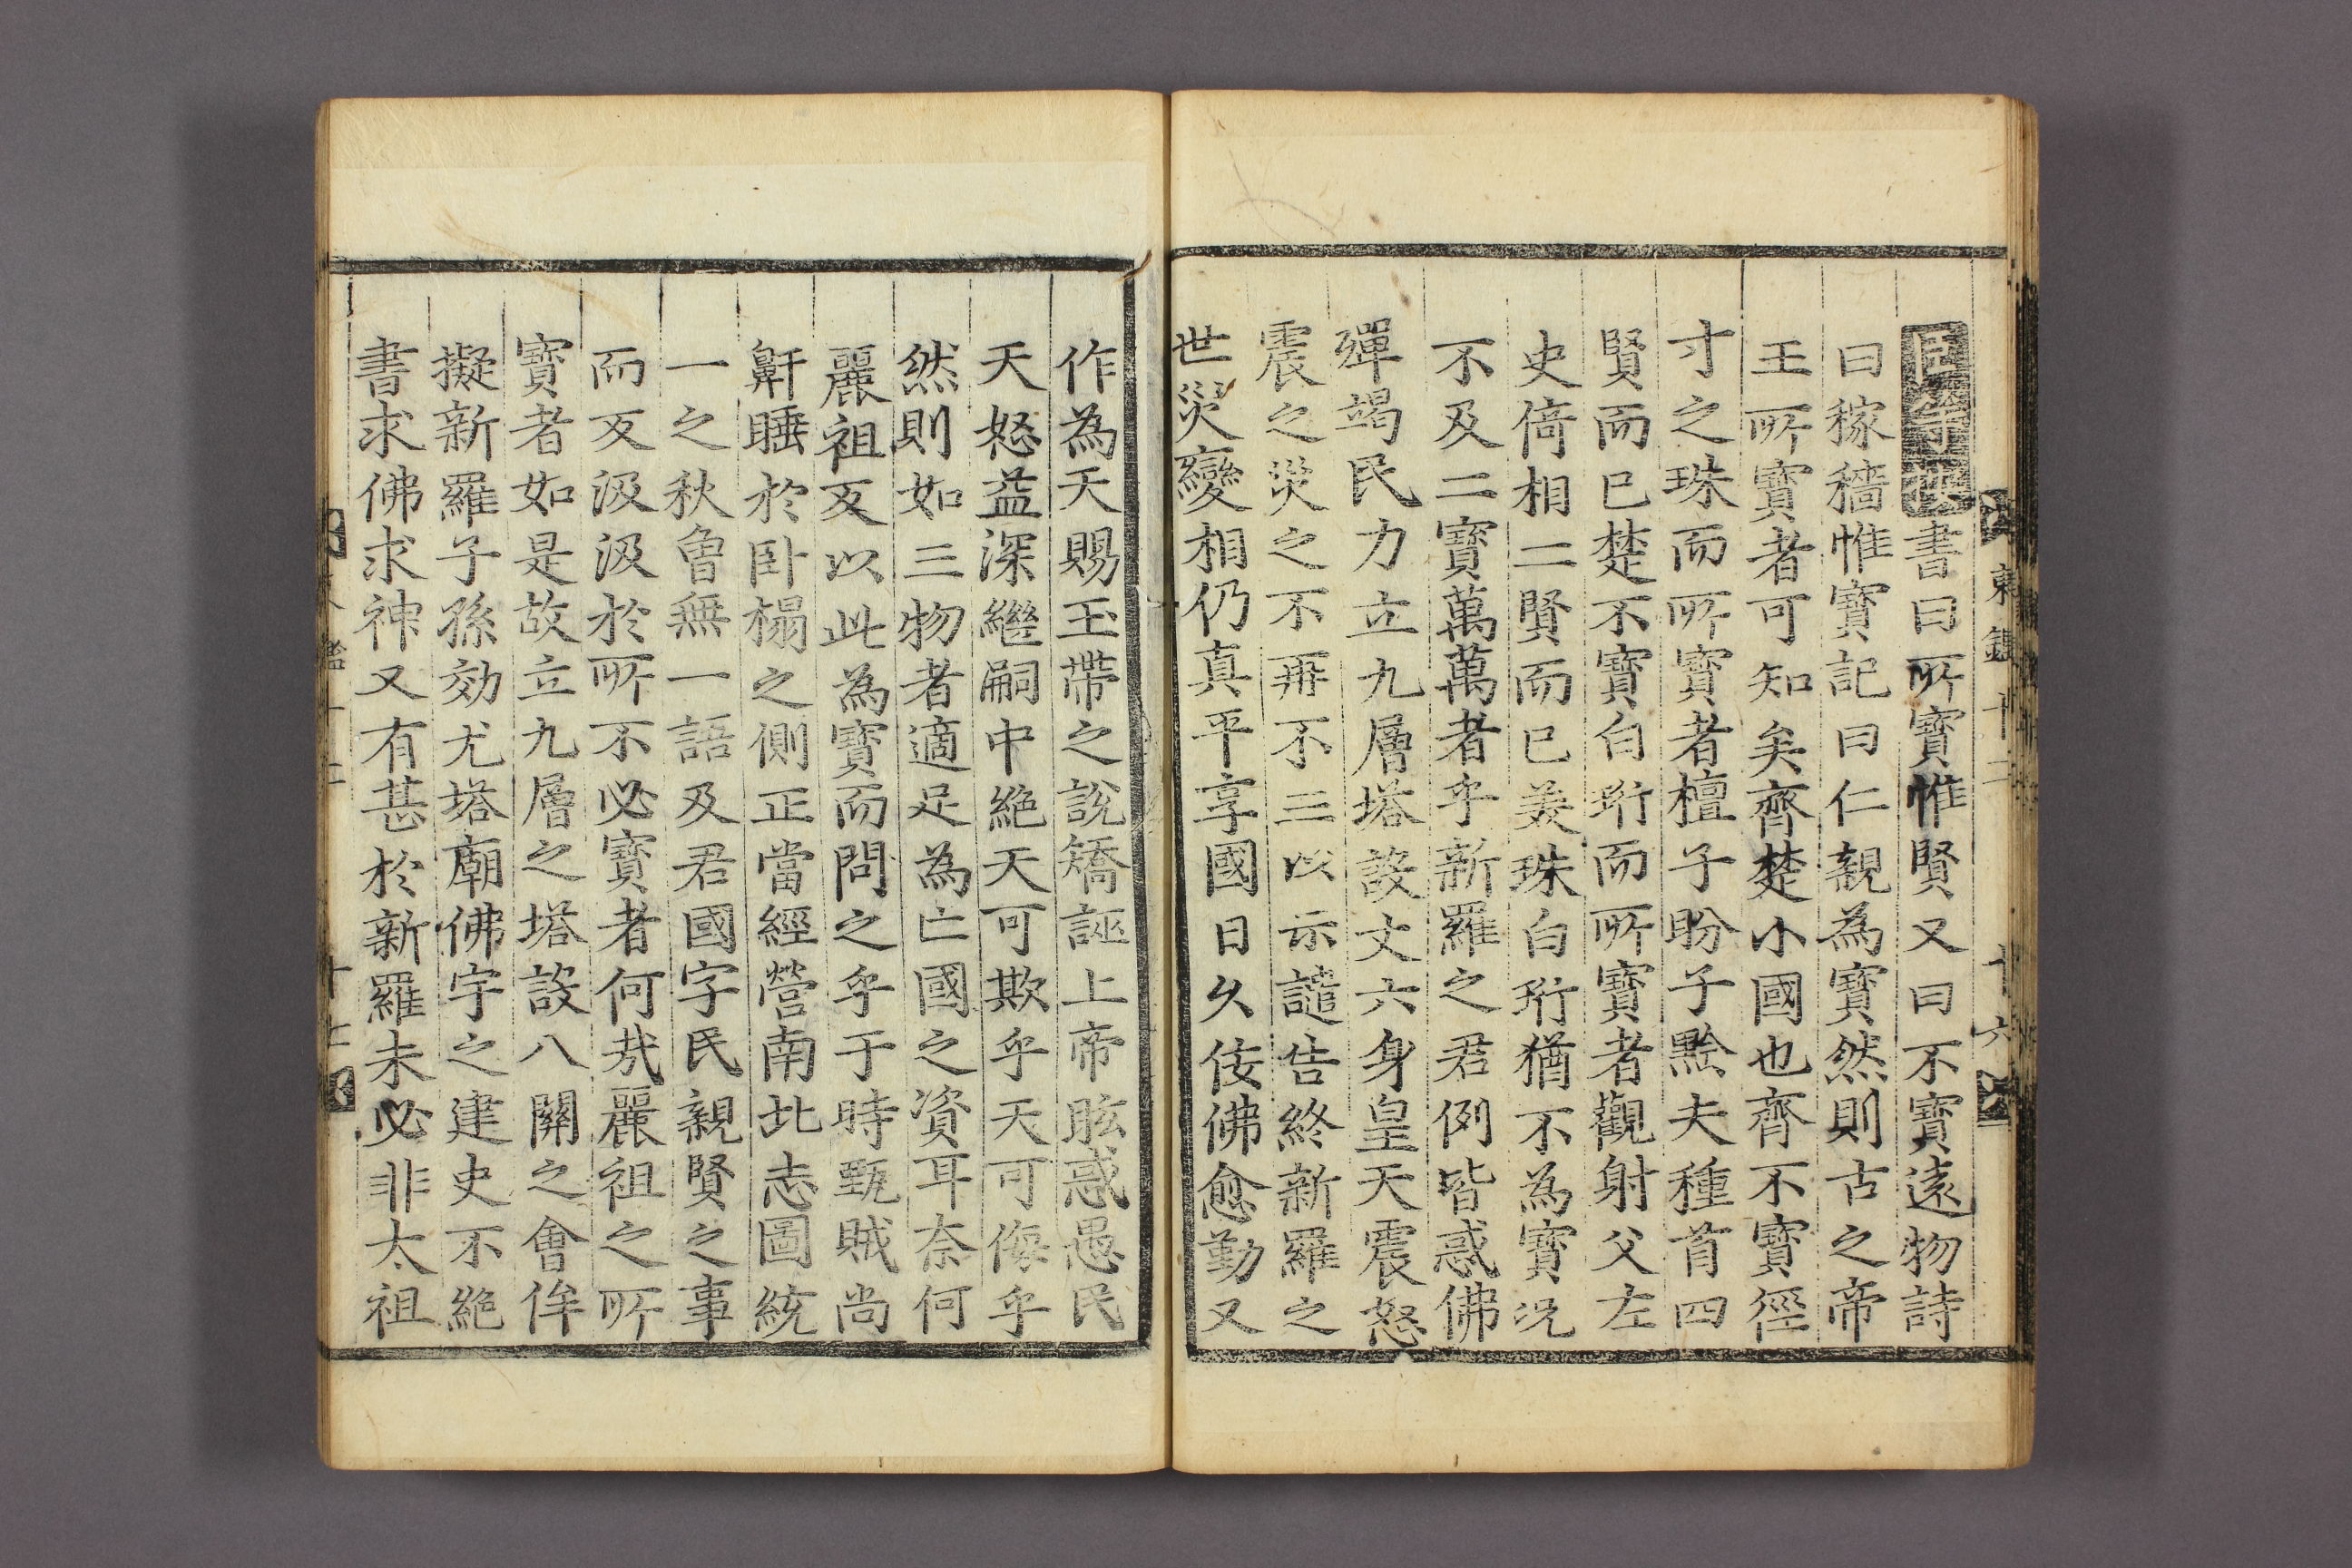 臣等按書曰所寶惟賢又曰不寶遠物詩
曰稼穡惟寶記曰仁親為寶然則古之帝
王所寶者可知矣齊楚小國也齊不寶徑
寸之珠而所寶者檀子盼子黔夫種首四
賢而已楚不寶白珩而所寶者觀射父左
史倚相二賢而已美珠白珩猶不為寶况
不及二寶萬萬者乎新羅之君例皆惑佛
殫竭民力立九層塔設丈六身皇天震怒
震之災之不再不三以示譴告終新羅之
世災變相仍真平享國日久侫佛愈勤又
東鑑十二
十六
作為天賜玉帶之說矯誣上帝眩惑愚民
天怒益深繼嗣中絶天可欺乎天可侮乎
然則如三物者適足為亡國之資耳奈何
麗祖亦以此為寶而問之乎于時甄賊尚
鼾睡於卧榻之側正當經營南北志圖統
一之秋魯無一語及君國字民親賢之事
而反汲汲於所不必寶者何㢤麗祖之所
寶者如是故立九層之塔設八關之會侔
擬新羅子孫効尤塔廟佛宇之建史不絶
書求佛求神又有甚於新羅未必非太祖
十七